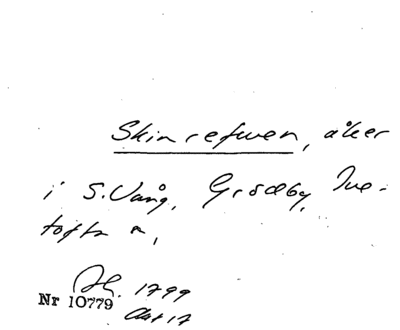 Skinrefwen, åker
i S. Vång, Grödby, Tve-
tofta
1799
Nr 10779
Akt 17